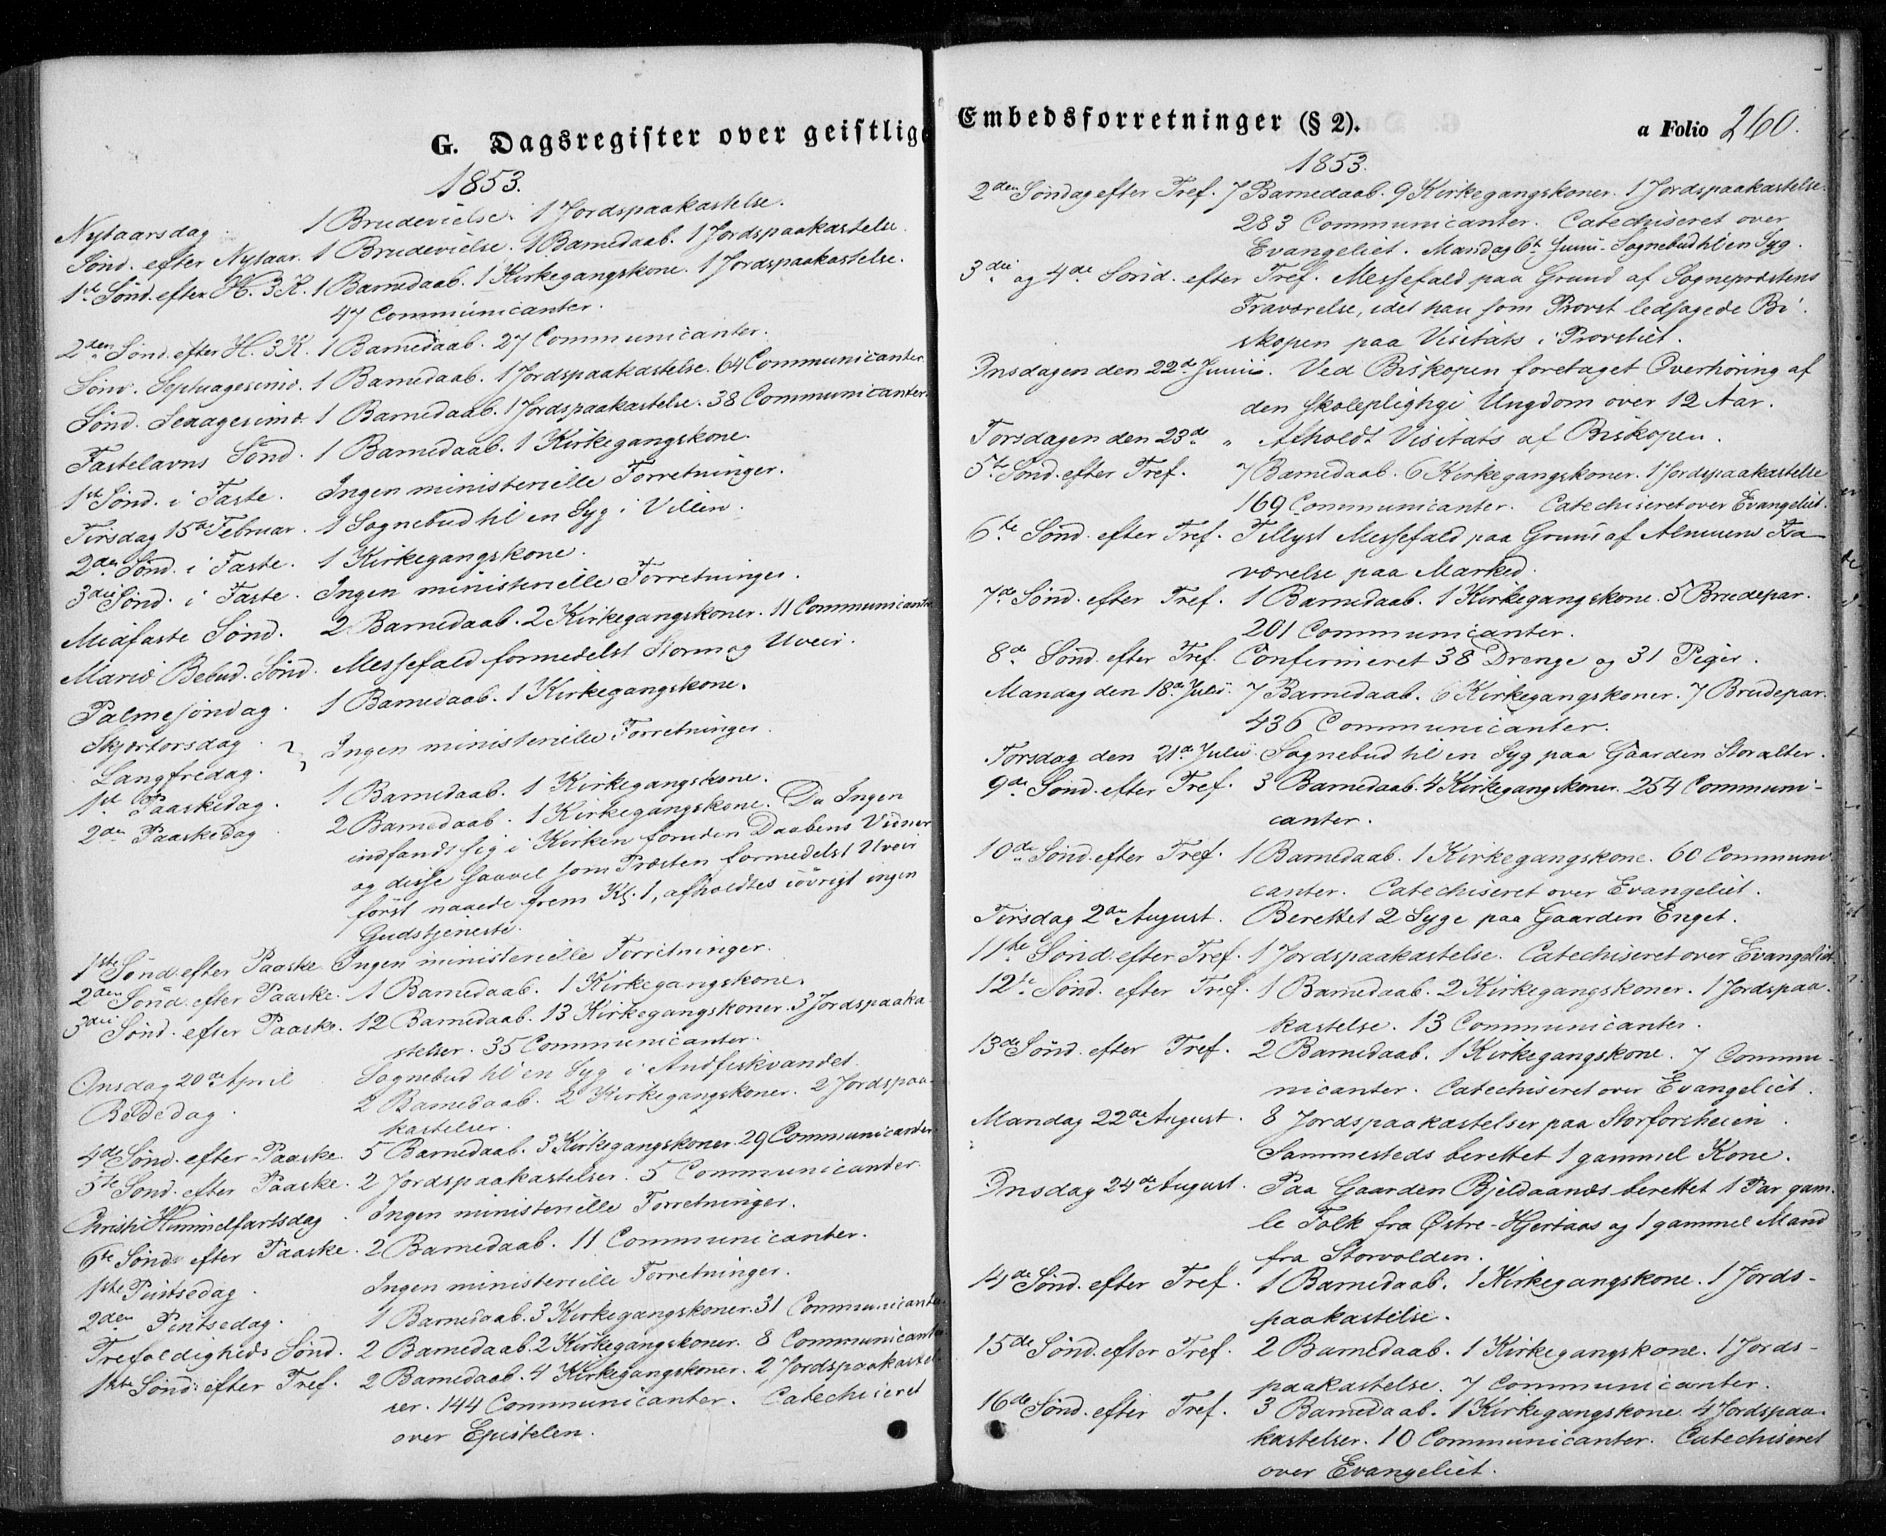 G. Dagsregister over geistlige
1853.
Nytaarsdag. 1 Brudevielse. 1 Jordspaakastelse.
Sønd. efter Nytaar. 1 Brudevielse. 1 Barnedaab. 1 Jordspaakastelse.
1ste Sønd. efter H. 3 K. 1 Barnedaab. 1 Kirkegangskone. 1 Jordspaakastelse.
47 Communicanter.
2den Sønd. efter H. 3 K. 1 Barnedaab. 27 Communicanter.
Sønd. Septuagesimæ. 1 Barnedaab. 1 Jordspaakastelse. 64 Communicanter.
Sønd. Sexagesimæ. 1 Barnedaab. 1 Jordspaakastelse. 38 Communicanter.
Fastelavns Sønd. 1 Barnedaab. 1 Kirkegangskone.
1ste Sønd. i Faste. Ingen ministerielle Forretninger.
Tirsdag 15de Februar. 1 Sognebud til en Syg i
2den Sønd. i Faste. 1 Kirkegangskone.
3die Sønd. i Faste. Ingen ministerielle Forretninger.
Midfaste Sønd. 2 Barnedaab. 2 Kirkegangskoner. 11 Communicanter
Mariæ Bebud. Sønd. Messefald formedelst Storm og Uveir.
Palmesøndag. 1 Barnedaab. 1 Kirkegangskone.
Skjærtorsdag.
Langfredag. Ingen ministerielle Forretninger.
1ste Paaskedag. 1 Barnedaab. 1 Kirkegangskone.
2den Paaskedag 2 Barnedaab. 1 Kirkegangskone. Da Ingen
indfandt sig i Kirken foruden Daabens Vidner
og disse saavel som Præsten formedelst Uveir
først naaede frem Kl. 1, afholdtes iøvrigt ingen
Gudstjeneste.
1ste Sønd. efter Paaske Ingen ministerielle Forretninger.
2den Sønd. efter Paaske. 1 Barnedaab. 1 Kirkegangskone.
3die Sønd. efter Paaske. 12 Barnedaab. 13 Kirkegangskoner. 3 Jordspaaka
stelser. 35 Communicanter.
Onsdag 20de April Sognebud til en Syg i Andfiskvandet.
Bededag. 2 Barnedaab. 2 Kirkegangskoner. 2 Jordspaa-
kastelser.
4de Sønd. efter Paaske. 5 Barnedaab. 3 Kirkegangskoner. 29 Communicanter.
5te Sønd. efter Paaske. 2 Jordspaakastelser. 5 Communicanter.
Christi Himmelfartsdag. Ingen ministerielle Forretninger.
6te Sønd. efter Paaske. 2 Barnedaab. 11 Communicanter.
1ste Pintsedag. Ingen ministerielle Forretninger.
2den Pintsedag. 1 Barnedaab. 3 Kirkegangskoner. 31 Communicanter.
Trefoldigheds Sønd. 2 Barnedaab. 2 Kirkegangskoner. 8 Communicanter
1ste Sønd. efter Tref. 2 Barnedaab. 4 Kirkegangskoner. 2 Jordspaakastel
ser. 144 Communicanter. Catechiseret
over Epistelen.
Embedsforretninger (§ 2).
a Folio 260.
1853.
2den Søndag efter Tref. 7 Barnedaab. 9 Kirkegangskoner. 1 Jordspaakastelse.
283 Communicanter. Catechiseret over
Evangeliet. Mandag 6te Junii Sognebud til en Syg.
3die og 4de Sønd. efter Tref. Messefald paa Grund af Sognepræstens
Fraværelse, idet han som Provst ledsagede Bi-
skopen paa Visitats i Provstiet.
Onsdagen den 22de Junii. Ved Biskopen foretaget Overhøring af
den skolepligtige Ungdom over 12 Aar.
Torsdagen den 23de " Afholdt Visitats af Biskopen.
5te Sønd. efter Tref. 7 Barnedaab. 6 Kirkegangskoner. 1 Jordspaakastelse
169 Communicanter. Catechiseret over Evangeliet.
6te Sønd. efter Tref. Tillyst Messefald paa Grund af Almuens Fra-
værelse paa Marked.
7de Sønd. efter Tref. 1 Barnedaab. 1 Kirkegangskone. 5 Brudepar.
201 Communicanter.
8de Sønd. efter Tref. Confirmeret 38 Drenge og 31 Piger.
Mandag den 18de Julii. 7 Barnedaab. 6 Kirkegangskoner. 7 Brudepar.
436 Communicanter.
Torsdag den 21de Julii Sognebud til en Syg paa Gaarden Storalter.
9de Sønd. efter Tref. 3 Barnedaab. 4 Kirkegangskoner. 254 Communi-
canter.
10de Sønd. efter Tref. 1 Barnedaab. 1 Kirkegangskone. 60 Communi-
canter. Catechiseret over Evangeliet.
Tirsdag 2den August. Berettet 2 Syge paa Gaarden Enget.
11te Sønd. efter Tref. 1 Jordspaakastelse. Catechiseret over Evangeliet.
12te Sønd. efter Tref. 1 Barnedaab. 2 Kirkegangskoner. 1 Jordspaa-
kastelse. 13 Communicanter.
13de Sønd. efter Tref. 2 Barnedaab. 1 Kirkegangskone. 7 Commu-
nicanter. Catechiseret over Evangeliet.
Mandag 22de August. 8 Jordspaakastelser paa Storforsheien.
Sammesteds berettet 1 gammel Kone.
Onsdag 24de August. Paa Gaarden Bjeldaanæs berettet 1 Par gam-
le Folk fra Østre-Hjertaas og 1 gammel Mand
fra Storvolden.
14de Sønd. efter Tref. 1 Barnedaab. 1 Kirkegangskone. 1 Jords-
paakastelse.
15de Sønd. efter Tref. 2 Barnedaab. 1 Kirkegangskone. 1 Jords-
paakastelse. 7 Communicanter.
16de Sønd. efter Tref. 3 Barnedaab. 1 Kirkegangskone. 4 Jordspaa-
kastelser. 10 Communicanter. Catechiseret
over Evangeliet.